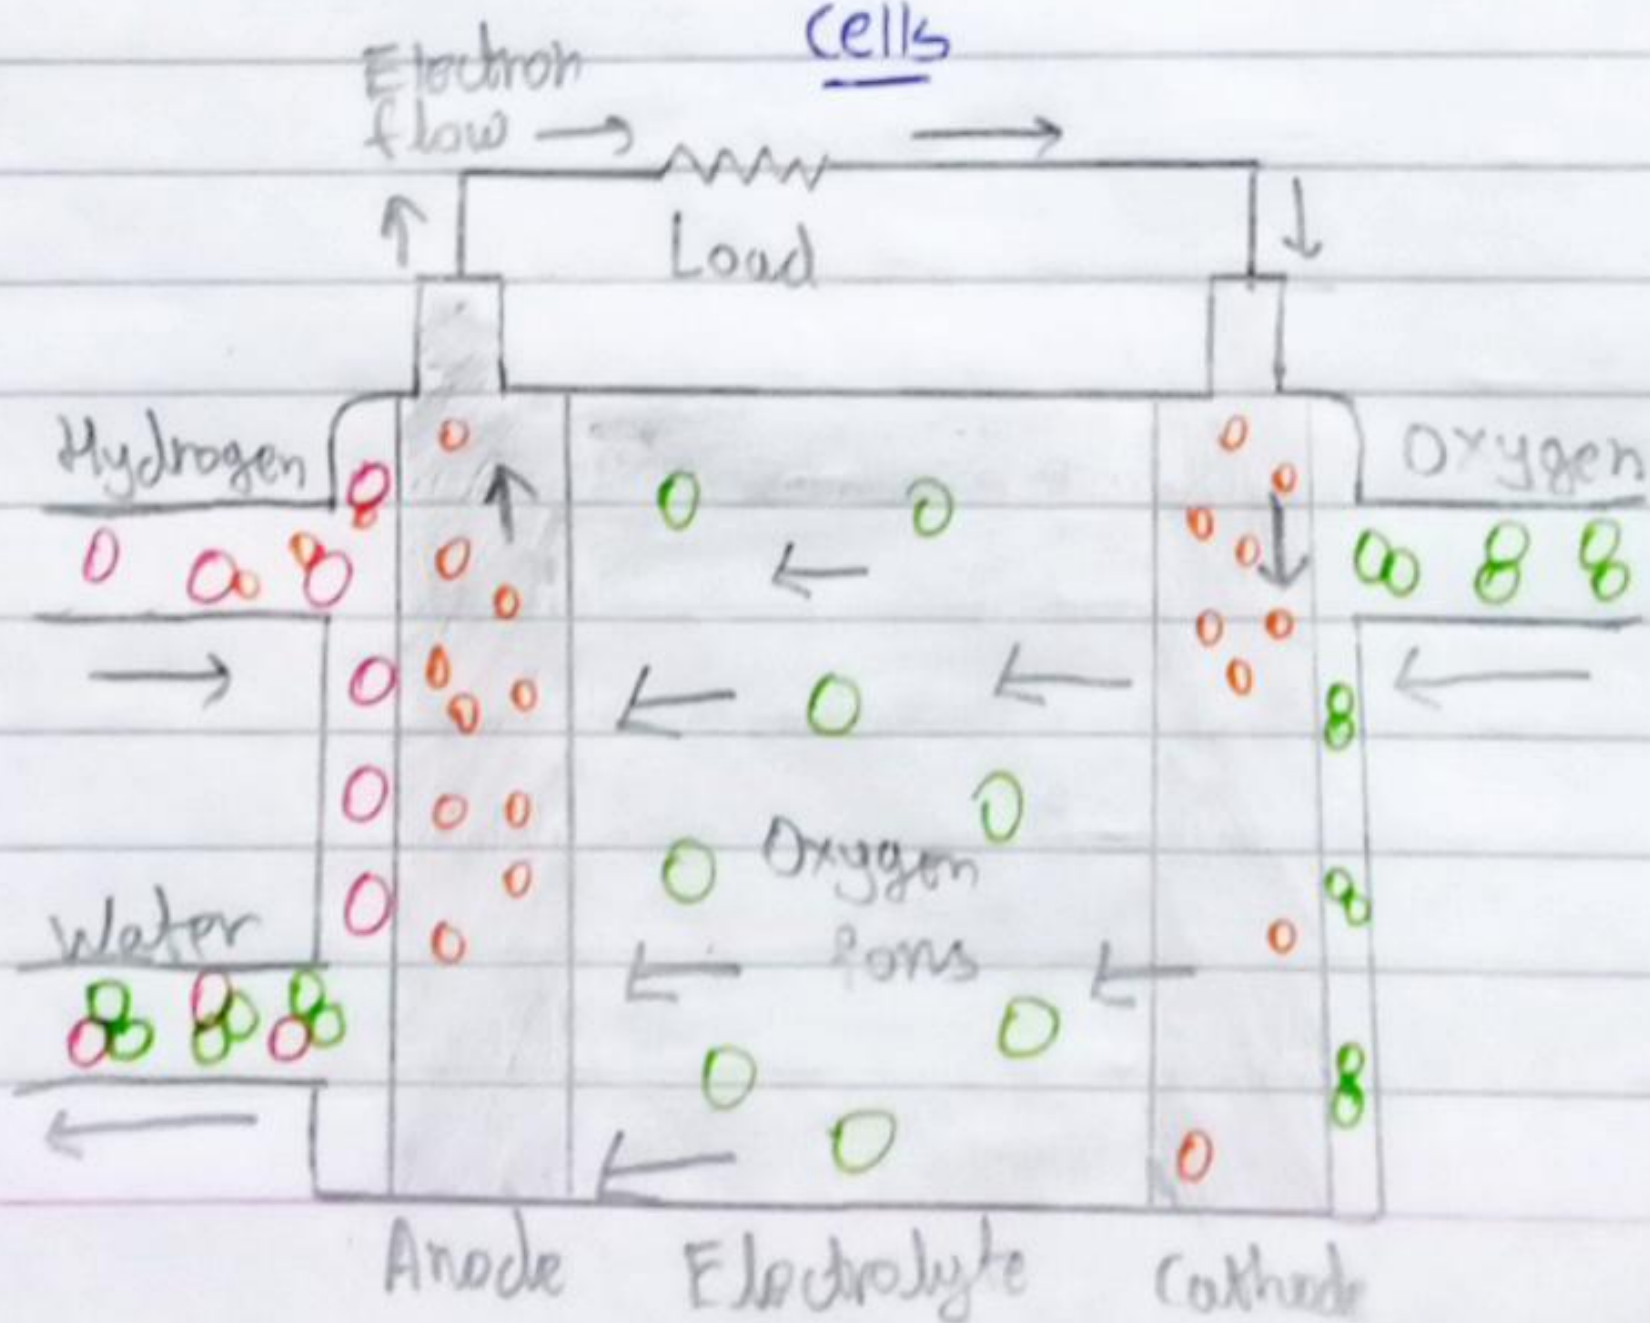 Cells
Electron
flow
Load
Hydrogen
Oxygen
Oxygen
ions
Water
Anode Electrolyte Cathode